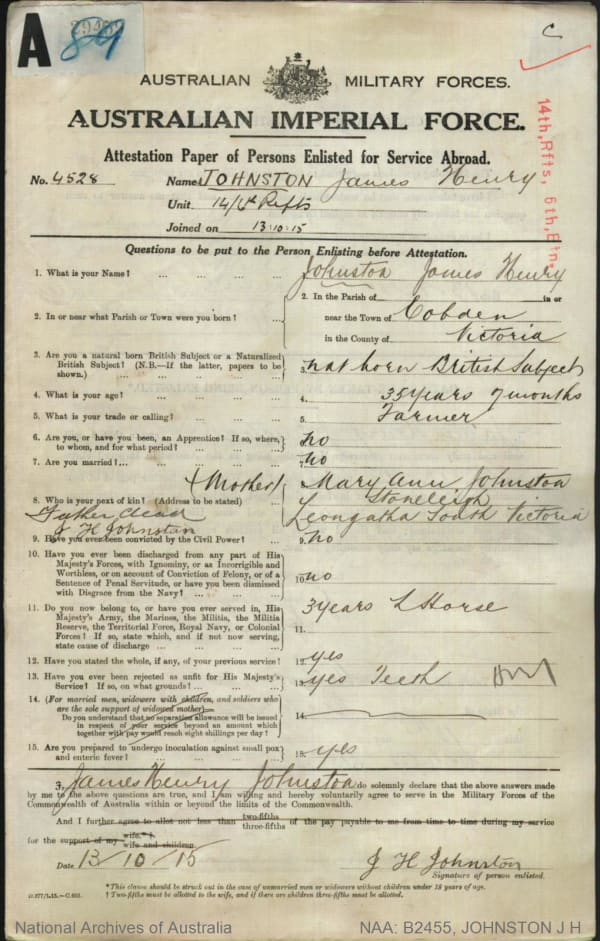 A
89
C
AUSTRALIAN MILITARY FORCES.
AUSTRALIAN IMPERIAL FORCE.
14th, Rfts, 6th, B'n,
Attestation Paper of Persons Enlisted for Service Abroad.
No. 4528 Name JOHNSTON James Henry
Unit 14/6th Rfts
Joined on 13.10.15
Questions to be put to the Person Enlisting before Attestation.
1. What is your Name? ... ... ... ... Johnston James Henry
2. In the Parish of in or
2. In or near what Parish or Town were you born? ... near the Town of Cobden
in the County of Victoria
3. Are you a natural born British Subject or a Naturalized
British Subject? (N.B.—If the latter, papers to be
shown.) ... ... ... ... ... 3. nat born British Subject
4. What is your age? ... ... ... ... 4. 35 years 7 months
5. What is your trade or calling? ... ... ... 5. Farmer
6. Are you, or have you been, an Apprentice? If so, where,
to whom, and for what period? ... ... ... 6. no
7. Are you married? ... ... ... ... 7. no
(Mother) Mary Ann Johnston
8. Who is your next of kin? (Address to be stated) ... Stoneleigh
Father dead Leongatha South Victoria
J H Johnston
9. Have you ever been convicted by the Civil Power? ... 9. no
10. Have you ever been discharged from any part of His
Majesty's Forces, with Ignominy, or as Incorrigible and
Worthless, or on account of Conviction of Felony, or of a
Sentence of Penal Servitude, or have you been dismissed
with Disgrace from the Navy? ... ... ... 10. no
11. Do you now belong to, or have you ever served in, His
Majesty's Army, the Marines, the Militia, the Militia
Reserve, the Territorial Force, Royal Navy, or Colonial
Forces? If so, state which, and if not now serving,
state cause of discharge ... ... ... ... 11. 3 years L Horse
12. Have you stated the whole, if any, of your previous service? 12. yes
13. Have you ever been rejected as unfit for His Majesty's
Service? If so, on what grounds? ... ... ... 13. yes Teeth
14. (For married men, widowers with children, and soldiers who
are the sole support of widowed mother)—
Do you understand that no separation allowance will be issued
in respect of your service beyond an amount which
together with pay would reach eight shillings per day? 14.
15. Are you prepared to undergo inoculation against small pox
and enteric fever? ... ... ... ... 15. yes
I, James Henry Johnston do solemnly declare that the above answers made
by me to the above questions are true, and I am willing and hereby voluntarily agree to serve in the Military Forces of the
Commonwealth of Australia within or beyond the limits of the Commonwealth.
And I further agree to allot not less than two-fifths three-fifths of the pay payable to me from time to time during my service
for the support of my wife.* † wife and children.
Date 13/10/15 J H Johnston
Signature of person enlisted.
* This clause should be struck out in the case of unmarried men or widowers without children under 18 years of age.
† Two-fifths must be allotted to the wife, and if there are children three-fifths must be allotted.
National Archives of Australia NAA: B2455, JOHNSTON J H